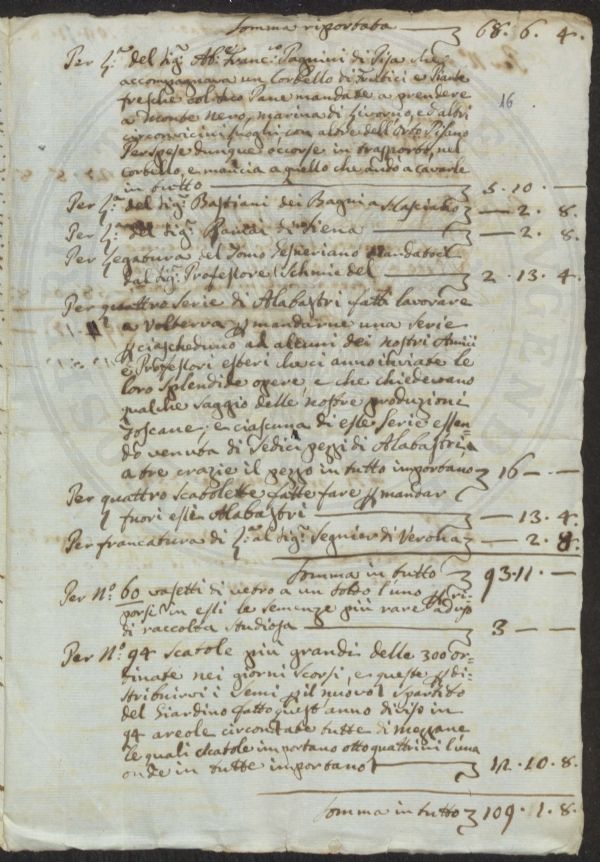 Somma riportata 68. 6. 4.
16
Per L.ª del Sig.r Ab.e Franc.o Pagnini di Pisa che
accompagnava un Corbello di Frutici e Piante
fresche col suo Pane mandate a prendere
a Monte Nero, marina di Livorno, ed altri
circonvicini luoghi con altre dell'Orto Pisano
Per spese dunque occorse in trasporto, nel
Corbello, e mancia a quello che andò a cavarle
in tutto 5. 10. —
Per L.ª del Sig.r Bastiani dei Bagni a S. Casciano — 2. 8.
Per L.ª del Sig.r di Siena — 2. 8.
Per legatura del Tomo Gesneriano mandatoci
dal Sig.r Professore Schmiedel 2. 13. 4.
Per quattro Serie di Alabastri fatti lavorare
a Volterra p mandarne una Serie
p ciascheduno ad alcuni dei nostri Amici
e Professori esteri che ci anno inviate le
loro splendide opere, e che chiedevano
qualche saggio delle nostre produzioni
Toscane, e ciascuna di este Serie essen
do venuta di Sedici pezzi di Alabastri, a
a tre crazie il pezzo in tutto importano 16 — —
Per quattro Scatolette fatte fare p mandar
fuori essi Alabastri — 13. 4.
Per francatura di L.ª al Sig.r Seguier di Verona — 2. 8.
Somma in tutto 93. 11. —
Per N.o 60 vasetti di vetro a un soldo l'uno p ri-
porsi in essi le semenze più rare ad uso
di raccolta studiosa 3 — —
Per N.o 94 Scatole più grandi delle 300 or-
dinate nei giorni scorsi, e queste p di-
stribuirvi i semi p il nuovo Spartito
del Giardino fatto quest'anno diviso in
94 areole circondate tutte di mezzane
le quali scatole importano otto quattrini l'una
onde in tutte importano 12. 10. 8.
Somma in tutto 109. 1. 8.